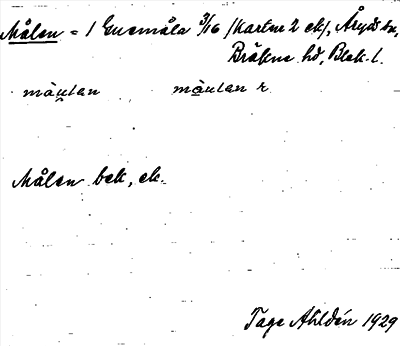 Målen = 1 Guemåla 3/16 (Kartor 2 ek), Åryds sn,
Bräkne hd, Blek. l.
måulan måulan r
Målen bek, ek.
Tage Ahldén 1929